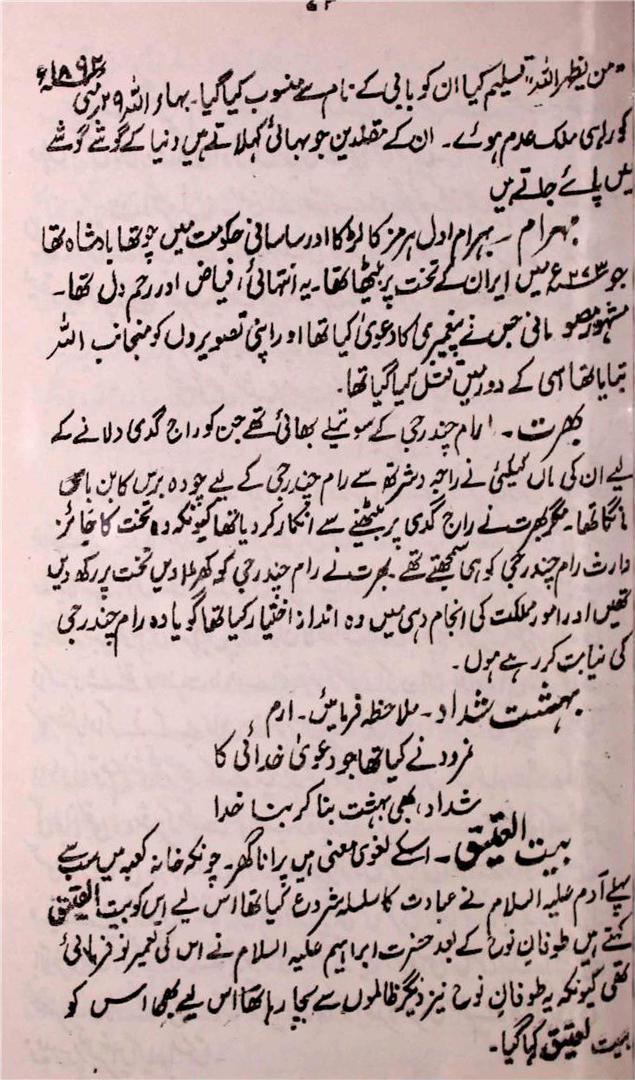 ۴۳
"من یظہر اللہ" تسلیم کیا ان کو بابی کے نام سے منسوب کیا گیا۔ بہاء اللہ ۲۹ مئی ۱۸۹۲ء
کو راہی ملک عدم ہوئے۔ ان کے مقلدین جو بہائی کہلاتے ہیں دنیا کے گوشے گوشے
میں پائے جاتے ہیں
بہرام ۔ بہرام اول ہرمز کا لڑکا اور ساسانی حکومت میں چوتھا بادشاہ تھا
جو ۲۷۳ء میں ایران کے تخت پر بیٹھا تھا۔ یہ انتہائی فیاض اور رحم دل تھا۔
مشہور مصور مانی جس نے پیغمبری کا دعویٰ کیا تھا اور اپنی تصویروں کو منجانب اللہ
بتایا تھا اسی کے دور میں قتل کیا گیا تھا۔
بھرت ۔ رام چندر جی کے سوتیلے بھائی تھے جن کو راج گدی دلانے کے
لیے ان کی ماں کیکئی نے راجہ دشرتھ سے رام چندر جی کے لیے چودہ برس کا بن باس
مانگا تھا۔ مگر بھرت نے راج گدی پر بیٹھنے سے انکار کر دیا تھا کیونکہ وہ تخت کا جائز
وارث رام چندر جی کو ہی سمجھتے تھے بھرت نے رام چندر جی کو کھڑاویں تخت پر رکھ دیں
تھیں اور امور مملکت کی انجام دہی میں وہ انداز اختیار کیا تھا گویا وہ رام چندر جی
کی نیابت کر رہے ہوں۔
بہشت شداد ۔ ملاحظہ فرمائیں ۔ ارم
نمرود نے کیا تھا جو دعویٰ خدائی کا
شداد بھی بہشت بنا کر بنا خدا
بیت العتیق ۔ اسکے لغوی معنی ہیں پرانا گھر ۔ چونکہ خانہ کعبہ میں سب سے
پہلے آدم علیہ السلام نے عبادت کا سلسلہ شروع کیا تھا اس لیے اس کو بیت العتیق
کہتے ہیں طوفان نوح کے بعد حضرت ابراہیم علیہ السلام نے اس کی تعمیر نو فرمائی
تھی کیونکہ یہ طوفان نوح نیز دیگر ظالموں سے بچا رہا تھا اس لیے بھی اس کو
بیت العتیق کہا گیا۔